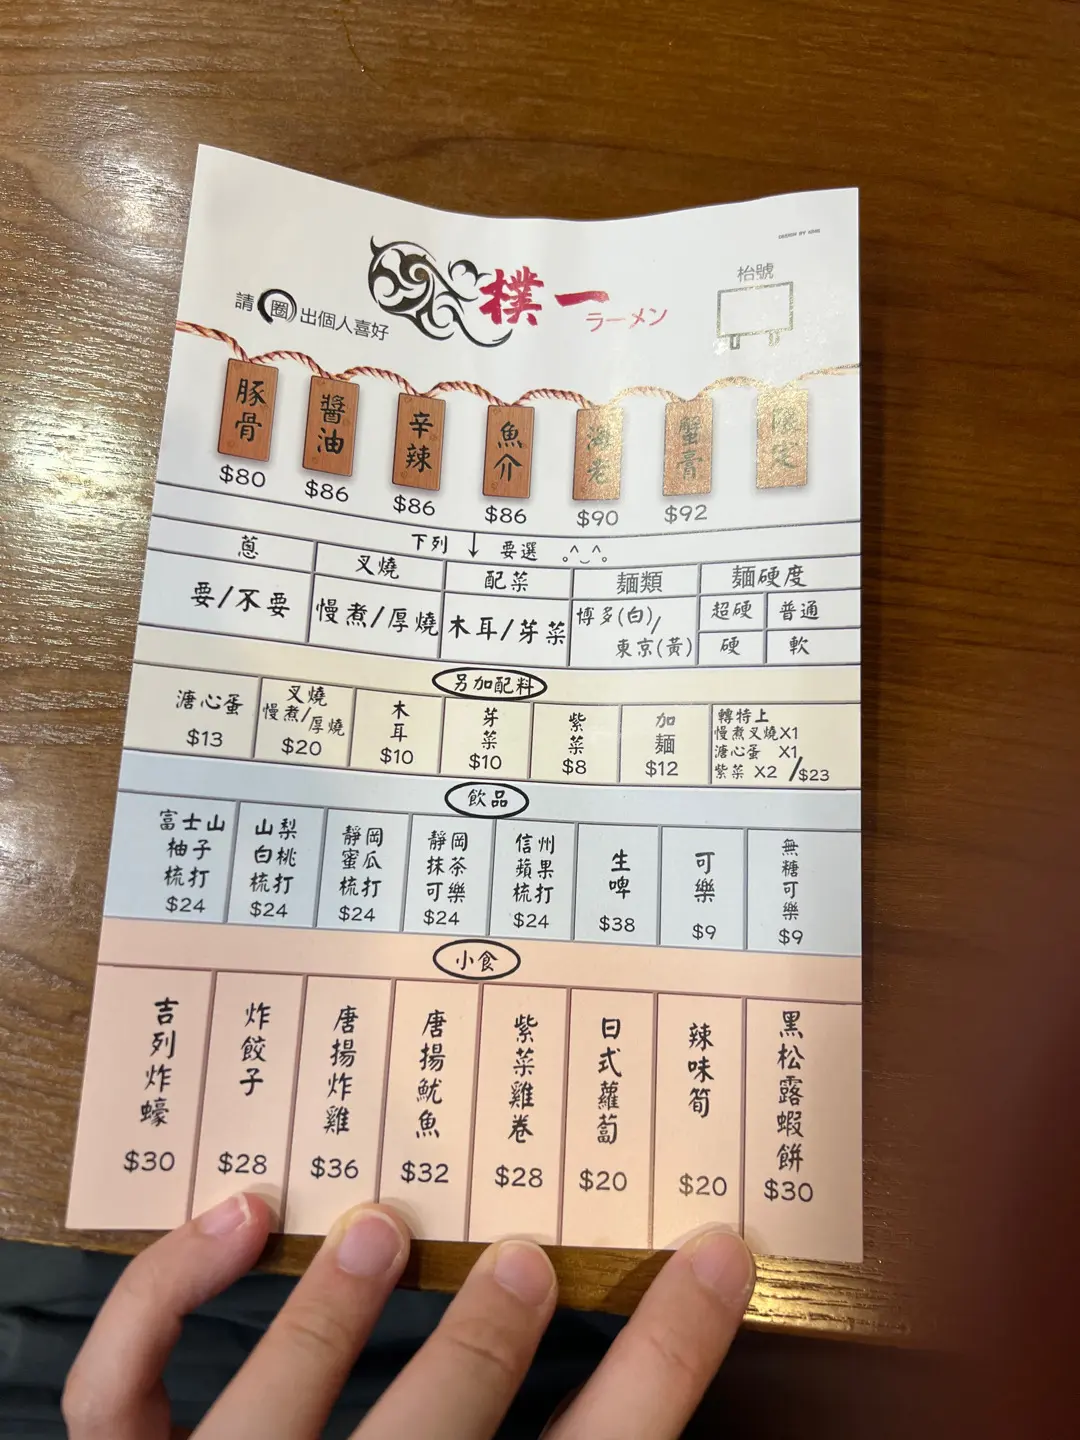 DESIGN BY KING
樸一
ラーメン
枱號
請圈出個人喜好
豚骨 $80
醬油 $86
辛辣 $86
魚介 $86
海老 $90
蟹膏 $92
限定
下列 ↓ 要選
蔥
要/不要
叉燒
慢煮/厚燒
配菜
木耳/芽菜
麵類
博多(白)/
東京(黃)
麵硬度
超硬 普通
硬 軟
另加配料
溏心蛋 $13
叉燒
慢煮/厚燒
$20
木耳 $10
芽菜 $10
紫菜 $8
加麵 $12
轉特上
慢煮叉燒X1
溏心蛋 X1
紫菜 X2 /$23
飲品
富士山
柚子
梳打
$24
山梨
白桃
梳打
$24
靜岡
蜜瓜
梳打
$24
靜岡
抹茶
可樂
$24
信州
蘋果
梳打
$24
生啤 $38
可樂 $9
無糖可樂 $9
小食
吉列炸蠔 $30
炸餃子 $28
唐揚炸雞 $36
唐揚魷魚 $32
紫菜雞卷 $28
日式蘿蔔 $20
辣味筍 $20
黑松露蝦餅 $30